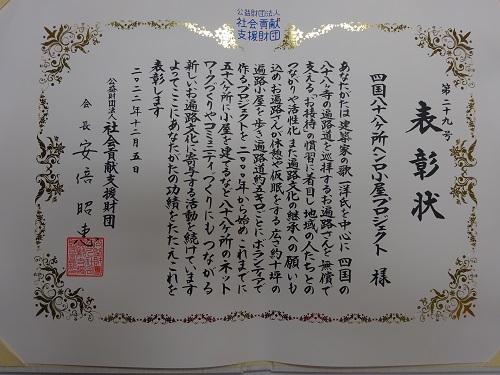 公益財団法人
社会貢献
支援財団
第二十九号
表彰状
四国八十八ヶ所ヘンロ小屋プロジェクト 様
あなたがたは建築家の歌一洋氏を中心に 四国の
八十八ヶ寺の遍路道を巡拝するお遍路さんを無償で
支える“お接待”の慣習に着目し地域の人たちとの
つながりや活性化 また遍路文化の継承への願いも
込めお遍路さんの休憩や仮眠をする広さ約十坪の
遍路小屋を歩き遍路道約五キロごとに ボランティアで
作るプロジェクトを二〇〇〇年から始め これまでに
五十八ヶ所に小屋を建てるなど八十八ヶ所の木ット
ワークづくりやコミュニティづくりにもつながる
新しいお遍路文化に寄与する活動を続けています
よってここにあなたがたの功績をたたえこれを
表彰します
二〇二二年十二月五日
公益財団法人 社会貢献支援財団
会長 安倍昭恵